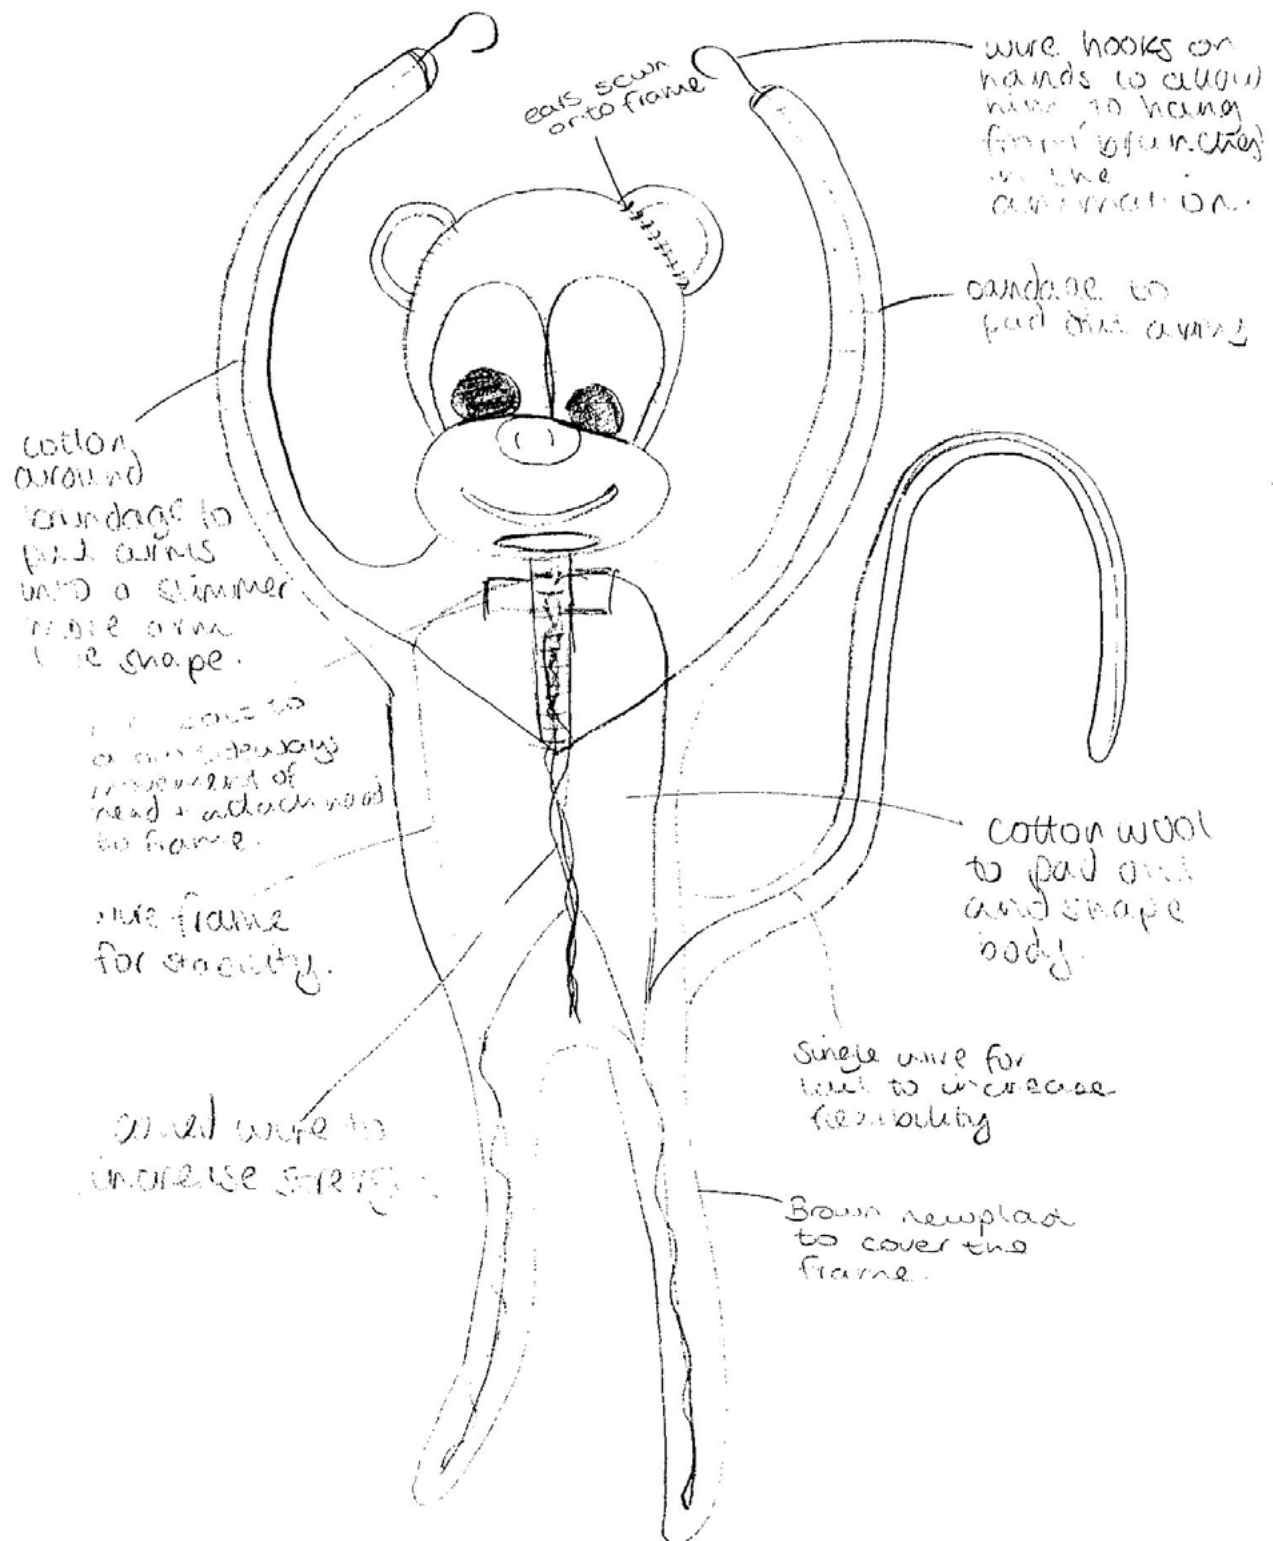 ears sewn
onto frame
wire hooks on
hands to allow
him to hang
from branches
in the
animation.
bandage to
pad out arms
cotton
around
bandage to
pull arms
into a slimmer
more arm
like shape.
to
sideways
movement of
head + attach head
to frame.
wire frame
for stability.
cotton wool
to pad out
and shape
body.
single wire for
tail to increase
flexibility
coiled wire to
increase strength.
Brown newplast
to cover the
frame.